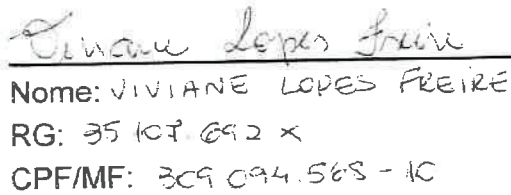 Viviane Lopes Freire
Nome: VIVIANE LOPES FREIRE
RG: 35 107 692 X
CPF/MF: 309 094.568-10